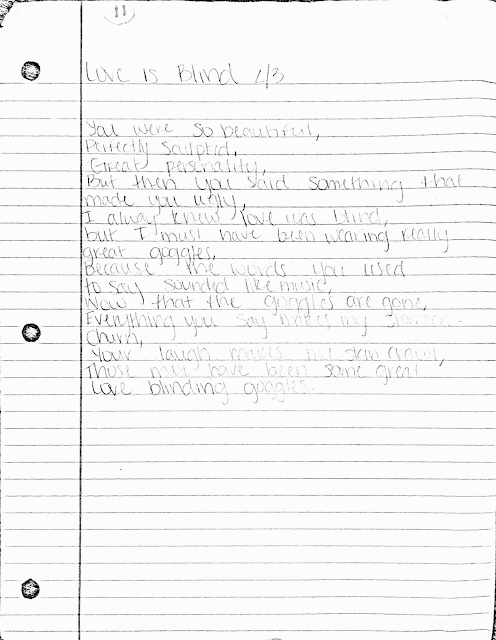 11
Love is Blind 1/3
You were so beautiful,
Perfectly Sculptid,
Great personality,
But then you said something that
made you ugly,
I alway knew love was blind,
but I must have been wearing really
great goggles,
Because the words you used
to say sounded like music,
Now that the goggles are gone,
Everything you say makes my
Churn,
Your laugh makes my skin crawl,
Those must have been some great
Love blinding goggles.